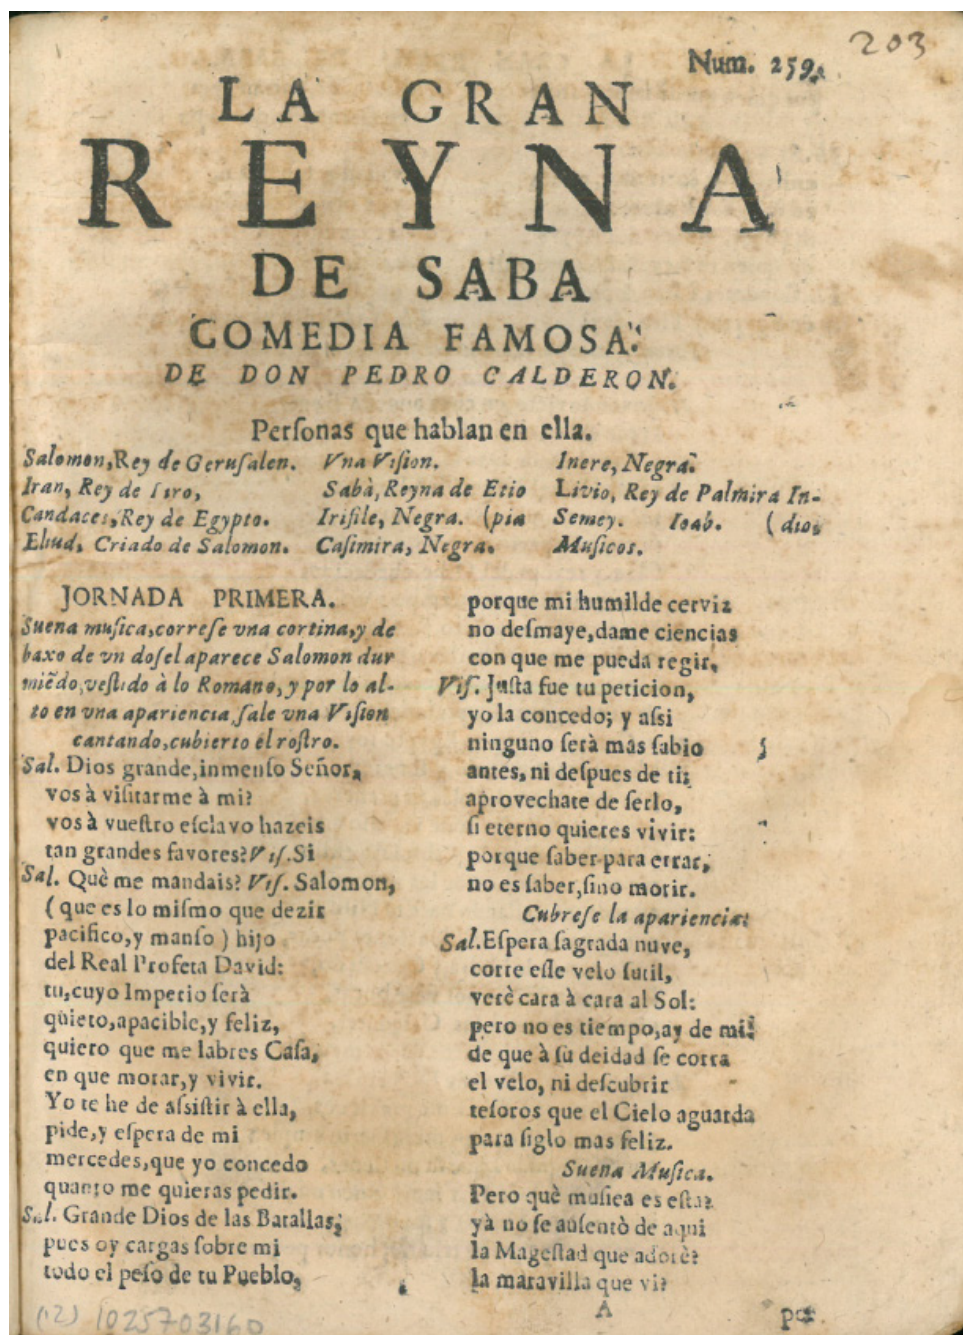 203
Num. 259.
LA GRAN
REYNA
DE SABA
COMEDIA FAMOSA.
DE DON PEDRO CALDERON.
Perſonas que hablan en ella.
Salomon, Rey de Geruſalen. Vna Viſion. Inere, Negra.
Iran, Rey de Tiro, Sabà, Reyna de Etio Livio, Rey de Palmira In-
Candaces, Rey de Egypto. Iriſile, Negra. (pia Semey. Ioab. (dio,
Eliud, Criado de Salomon. Caſimira, Negra. Muſicos.
JORNADA PRIMERA.
Suena muſica, correſe vna cortina, y de
baxo de vn doſel aparece Salomon dur
miẽdo, veſtido à lo Romano, y por lo al-
to en vna apariencia ſale vna Viſion
cantando, cubierto el roſtro.
Sal. Dios grande, inmenſo Señor,
vos à viſitarme à mi?
vos à vueſtro eſclavo hazeis
tan grandes favores? Viſ. Si
Sal. Què me mandais? Viſ. Salomon,
(que es lo miſmo que dezir
pacifico, y manſo) hijo
del Real Profeta David:
tu, cuyo Imperio ſerà
quieto, apacible, y feliz,
quiero que me labres Caſa,
en que morar, y vivir.
Yo te he de aſsiſtir à ella,
pide, y eſpera de mi
mercedes, que yo concedo
quanto me quieras pedir.
Sal. Grande Dios de las Batallas,
pues oy cargas ſobre mi
todo el peſo de tu Pueblo,
porque mi humilde cerviz
no deſmaye, dame ciencias
con que me pueda regir,
Viſ. Juſta fue tu peticion,
yo la concedo; y aſsi
ninguno ſerà mas ſabio
antes, ni deſpues de ti;
aprovechate de ſerlo,
ſi eterno quieres vivir:
porque ſaber para errar,
no es ſaber, ſino morir.
Cubreſe la apariencia:
Sal. Eſpera ſagrada nuve,
corre eſſe velo ſutil,
verè cara à cara al Sol:
pero no es tiempo, ay de mi!
de que à ſu deidad ſe corra
el velo, ni deſcubrir
teſoros que el Cielo aguarda
para ſiglo mas feliz.
Suena Muſica.
Pero què muſica es eſta?
yà no ſe auſentò de aqui
la Mageſtad que adorè?
la maravilla que vi?
A por
(12) 1025703160